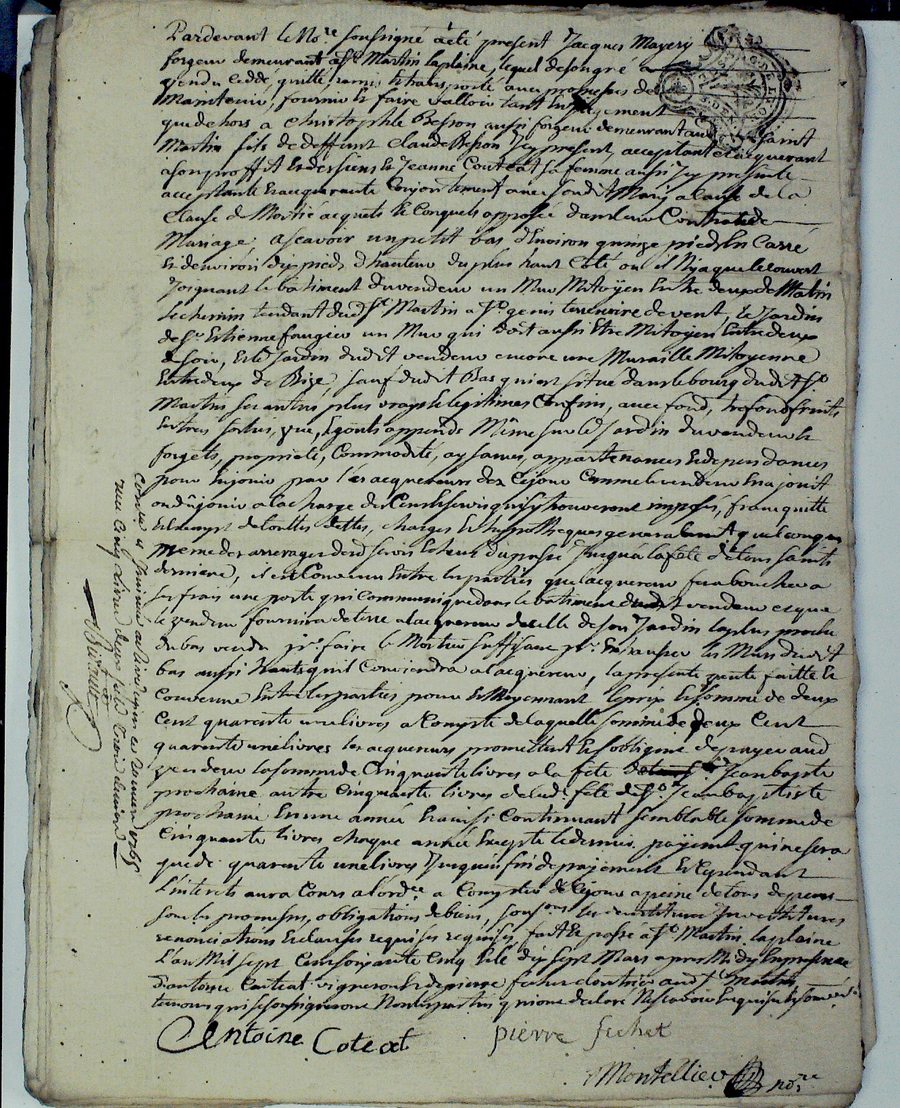 Pardevant le No.re soussigné a été present Jacques Mayery
forgeur demeurant a St. Martin la plaine, lequel de son gré a
vendu cedé, quitté, remis et transporté avec promesses de
Maintenir, fournir et faire valloir tant en jugement
que dehors a Christophle Besson aussi forgeur demeurant aud. Saint
Martin fils de deffunt Claude Besson icy present, acceptant et acquerant
a son proffit et des siens et Jeanne Couteat sa femme aussi icy presente
acceptante et acquerante conjointement avec sondit Mary a cause de la
Clause de Moitié acquets et Conquets apposée dans leur Contrat de
Mariage, ascavoir un petit bas d'Environ quinze pieds en Carré
et d'environ dix pieds d'hauteur du plus haut Coté ou il N'y a que le couvert
Joignant le batiment du vendeur un Mur Mitoyen entre deux de Matin
le chemin tendant dud. St. Martin a St. genis terrenoire de vent, le Jardin
de Sr. Estienne fougier un Mur qui doit aussi etre Mitoyen entre deux
de soir, et le Jardin dudit vendeur encore une Muraille Mitoyenne
entre deux de Bize, sauf dudit Bas qui est situé dans le bourg dudit St.
Martin ses autres plus vrays et legitimes Confins, avec fond, trefond fruits
entrées sorties, vüe, Egouts appends Même sur le Jardin du vendeur et
forgets, proprieté, Commodité, aysances, appartenances et dependances
pour en jouir par les acquereurs dez ce jour Comme le vendeur en a jouit
ou dû jouir a la charge des Cens et servis qui s'y trouveront imposés, franc quitte
et exempt de touttes dettes, charges et hypotheques generalement quelconques
meme des arrerages desd. servis et cens du passé Jusqua la fête de tous saints
derniere, il est Convenu entre les parties que l'acquereur fera boucher a
ses frais une porte qui communique dans le batiment dudit vendeur et que
le vendeur fournira de terre a l'acquereur de celle de son Jardin la plus proche
du bas vendu pr. faire le Mortier suffisant pr. Exhausser les Murs dudit
bas aussi hauts qu'il Conviendra a l'acquereur, la presente vente faitte et
Convenue entre les parties pour et Moyennant le prix et Somme de deux
Cent quarente une livres a Compte de laquelle somme de deux Cent
quarente une livres les acquereurs promettent et s'obligent de payer aud.
vendeur la Somme de Cinquante livres a la fête St. Jean baptiste
prochaine autre Cinquante livres de lad. fête de St. Jean baptiste
prochaine en une année et ainsi Continuant semblable somme de
Cinquante livres chaque année Excepté le dernier payement qui ne sera
que de quarente une livres Jusqu'en fin de payement Et Cependant
L'interets aura Cours a l'ord.re a Compter de ce jour a peine de tous depens
sous les promesses, obligations de biens, investitures
renonciations et clauses requises fait et passé a St. Martin la plaine
L'an Mil sept Cent soixante Cinq et le dix sept Mars apres Midy En presence
d'antoine Couteat vigneron et de pierre fichet cloutier aud. St. Martin
temoins qui se sont signés non les parties qui ont declaré Ne scavoir Enquis et sommés
Antoine Coteat pierre fichet
Montellier no.re
Contr.
reçu Cinq livres deux sols Trois deniers